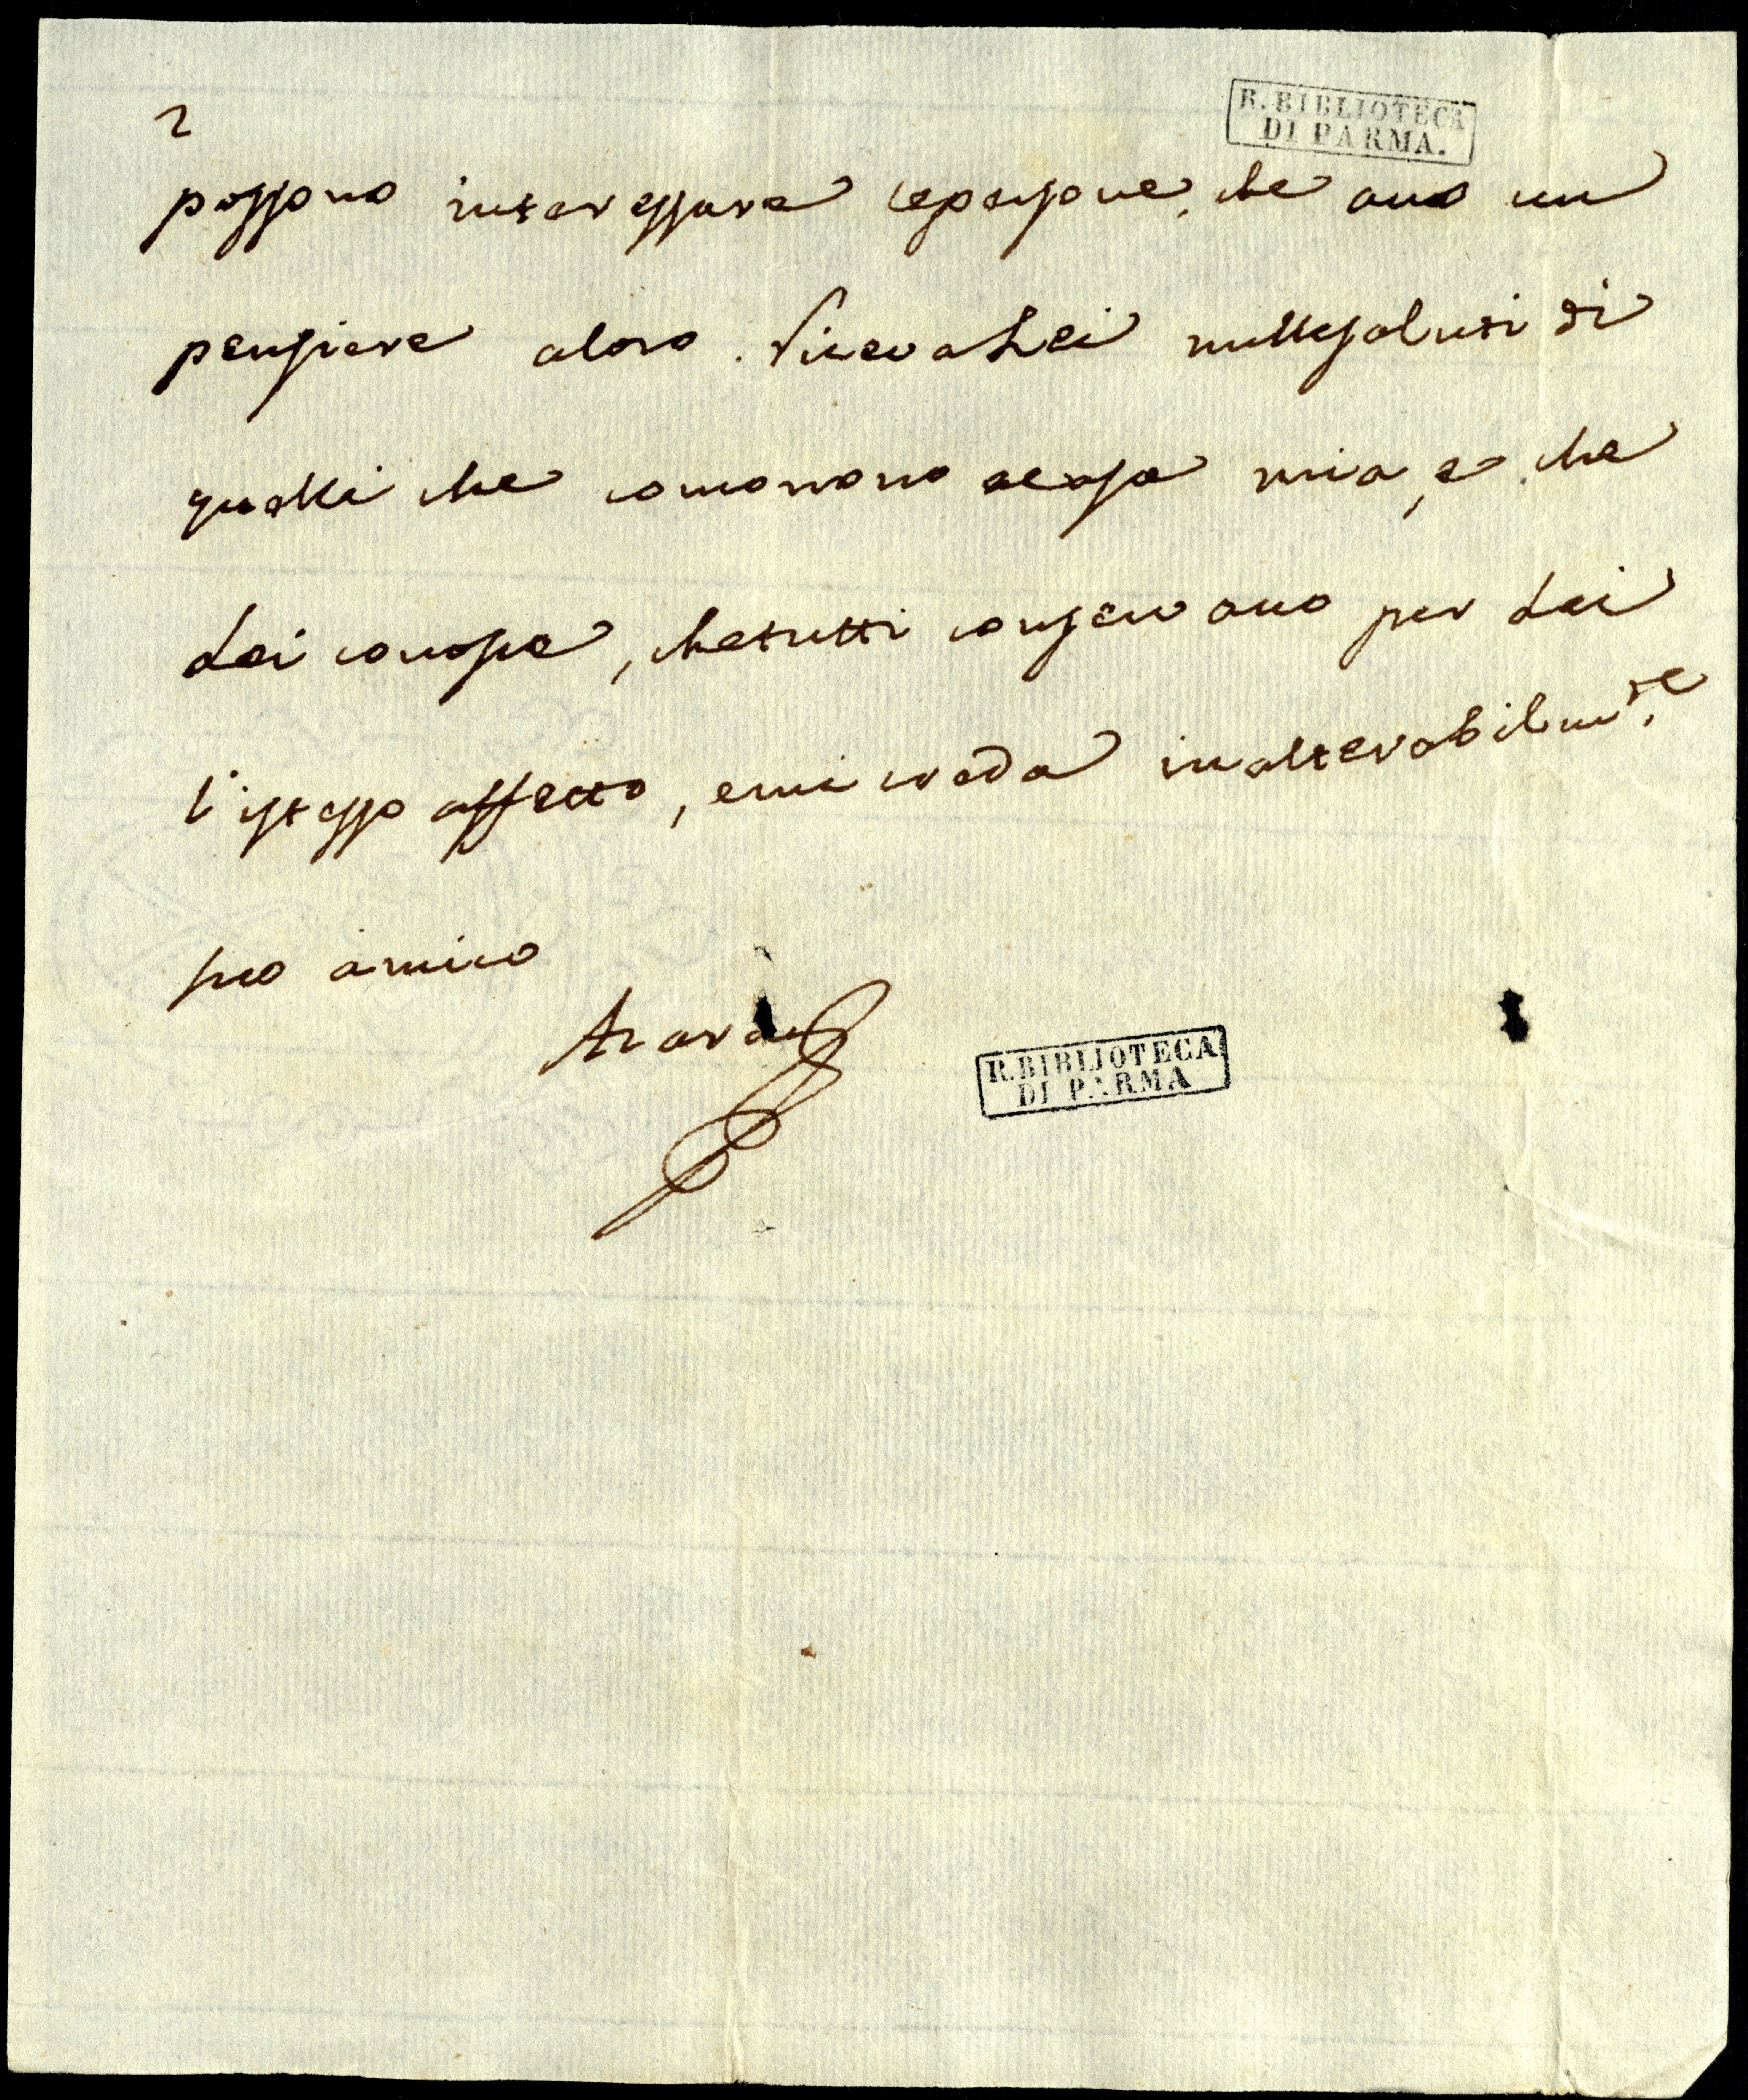 2
R. BIBLIOTECA
DI PARMA.
possono interessare le persone, che ano un
pensiere aloro. Riceva Lei mille saluti di
quelli che comorono a casa mia, e che
Lei conosce, che tutti conservano per Lei
l'istesso affetto, e mi creda inalterabilm.te
suo amico
Azara
R. BIBLIOTECA
DI PARMA